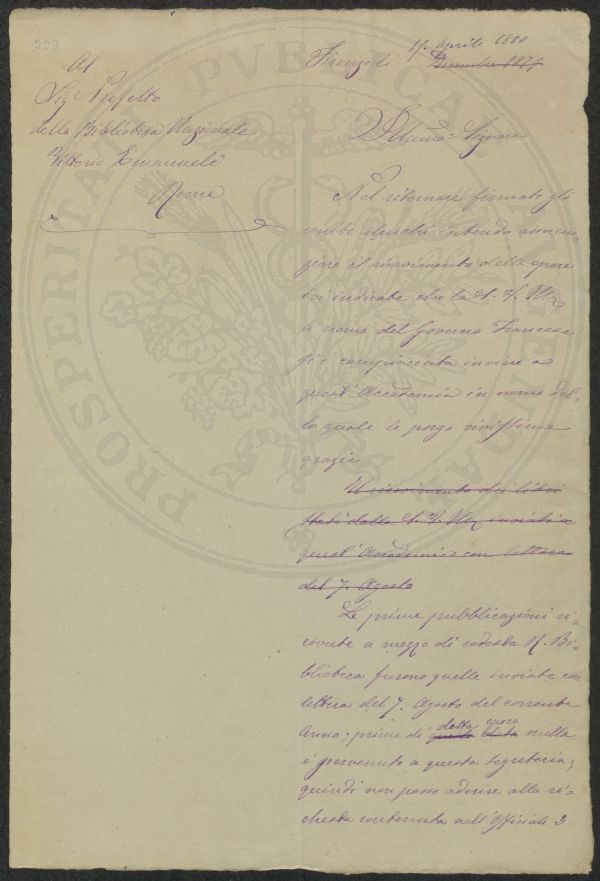 Al
Sig. Prefetto
della Biblioteca Nazionale
Vittorio Emanuele
Roma
Firenze li 17. Aprile 1880
Dicembre 1877
Illmo: Signore
Nel ritornare firmati gli
uniti elenchi intendo annun-
ziare il ricevimento delle opere
ivi indicate che la S. V. Illma
a nome del Governo Francese
si è compiaciuta inviare a
quest'Accademia in nome del-
la quale le porgo vivissime
grazie
Il ricevimento dei libri
stati dalla S. V. Illma inviati a
quest'Accademia con lettera
del 7. Agosto
Le prime pubblicazioni ri-
cevute a mezzo di codesta R. Bi-
blioteca furono quelle inviate con
lettera del 7. Agosto del corrente
anno; prima di detta epoca nulla
è pervenuto a questa segreteria;
quindi non posso aderire alla ri-
chiesta contenuta nell'Officiale 3
PROSPERITATI PVBLICAE AVGENDAE